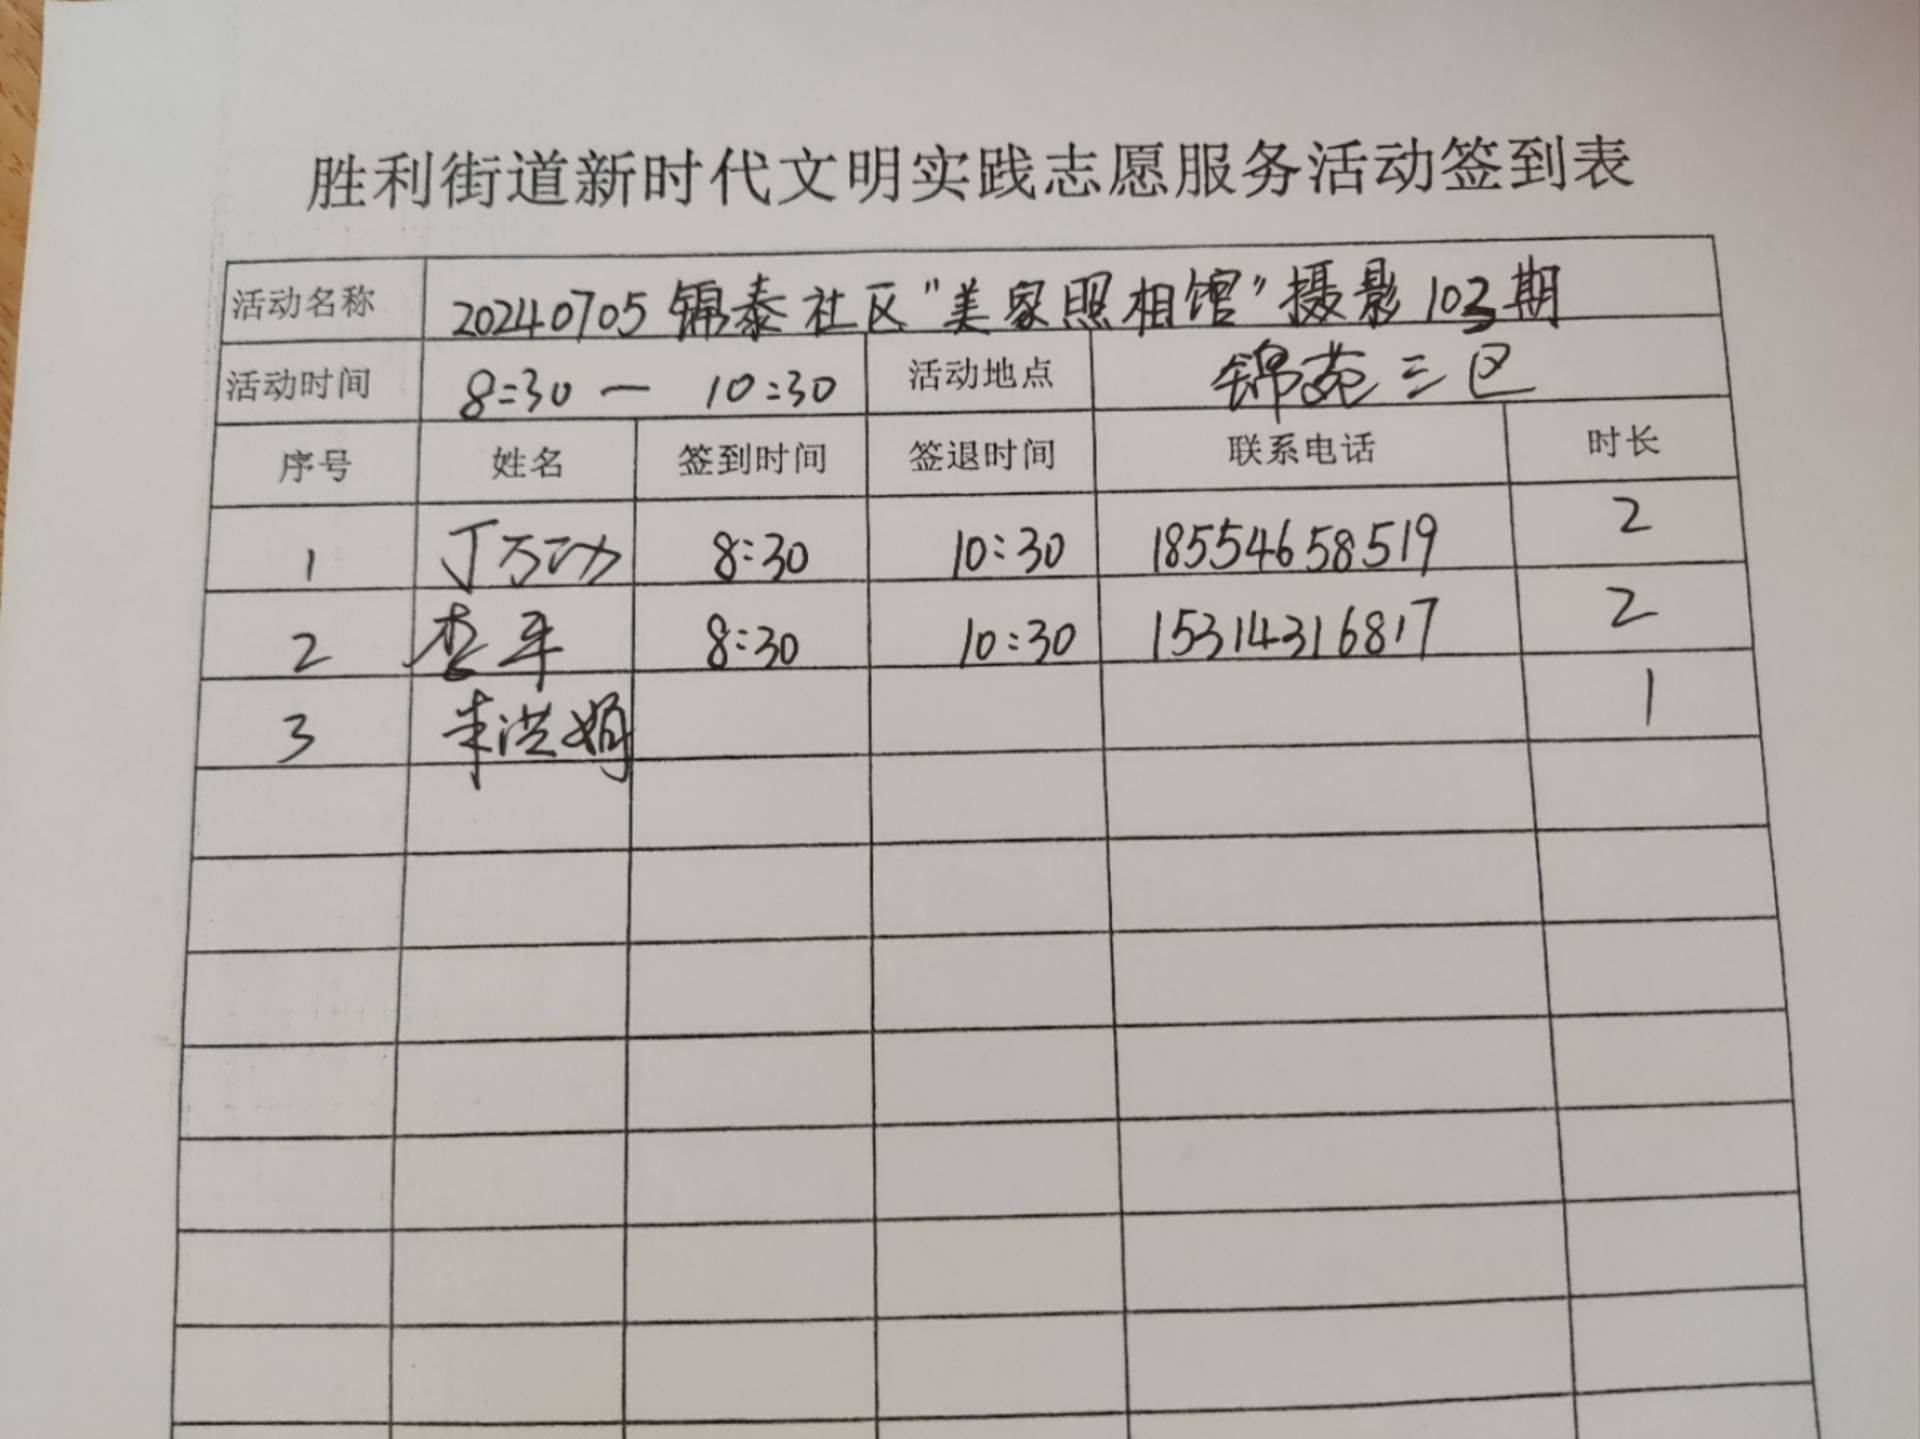 胜利街道新时代文明实践志愿服务活动签到表
活动名称 20240705锦泰社区"美家照相馆"摄影103期
活动时间 8:30 — 10:30 活动地点 锦苑三区
序号 姓名 签到时间 签退时间 联系电话 时长
1 丁万功 8:30 10:30 18554658519 2
2 查平 8:30 10:30 15314316817 2
3 朱洪娟 1